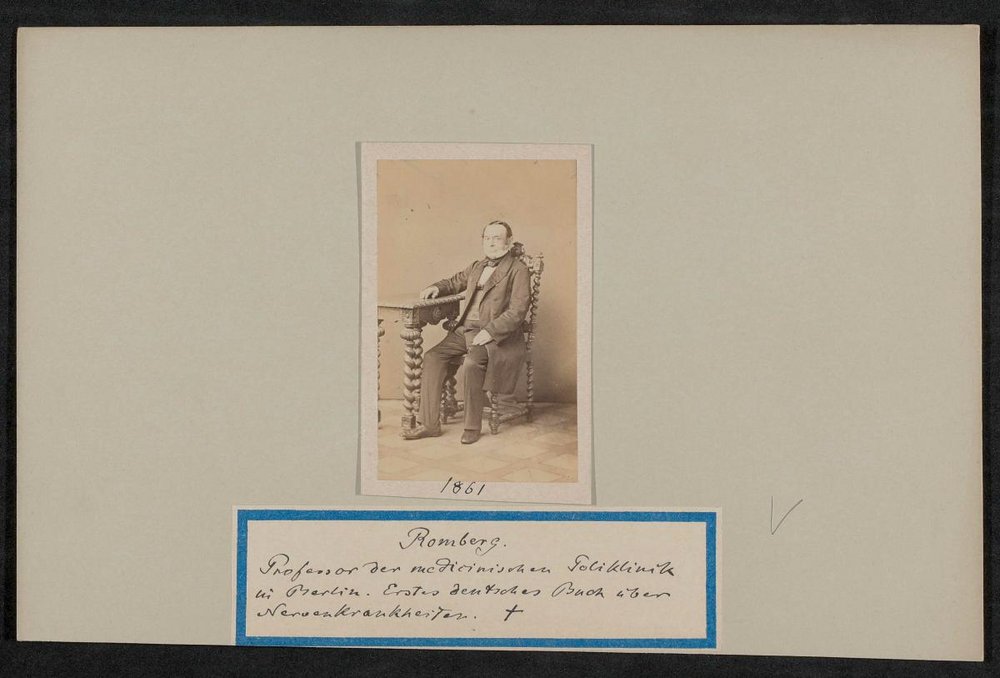 1861
Romberg.
Professor der medicinischen Poliklinik
in Berlin. Erstes deutsches Buch über
Nervenkrankheiten. †